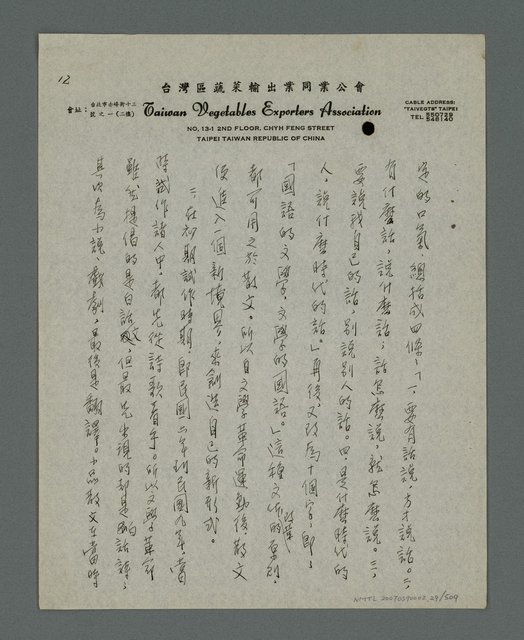 12
台灣區蔬菜輸出業同業公會
會址：台北市赤峰街十三號之一（二樓）
Taiwan Vegetables Exporters Association
NO, 13-1 2ND FLOOR. CHYH FENG STREET
TAIPEI TAIWAN REPUBLIC OF CHINA
CABLE ADDRESS:
"TAIVEGTS" TAIPEI
TEL 550729
546140
定的口氣，總括成四條，「一，要有話說，方才說話。二，
有什麼話，說什麼話；話怎麼說，就怎麼說。三，
要說我自己的話，別說別人的話。四，是什麼時代的
人，說什麼時代的話。」再後，又改為十個字，即：
「國語的文學，文學的國語。」這種文學改革的原則，
都可用之於散文。所以自文學革命運動後，散文
便進入一個新境界，來創造自己的新形式。
二，在初期試作時期，即民國六年到民國九年，當
時試作諸人中，都先從詩歌着手。所以文學革命
雖然提倡的是白話文，但最先出現的卻是白話詩，
其次為小說，戲劇，最後是翻譯。小品散文在當時
NMTL 20070590002_29/509